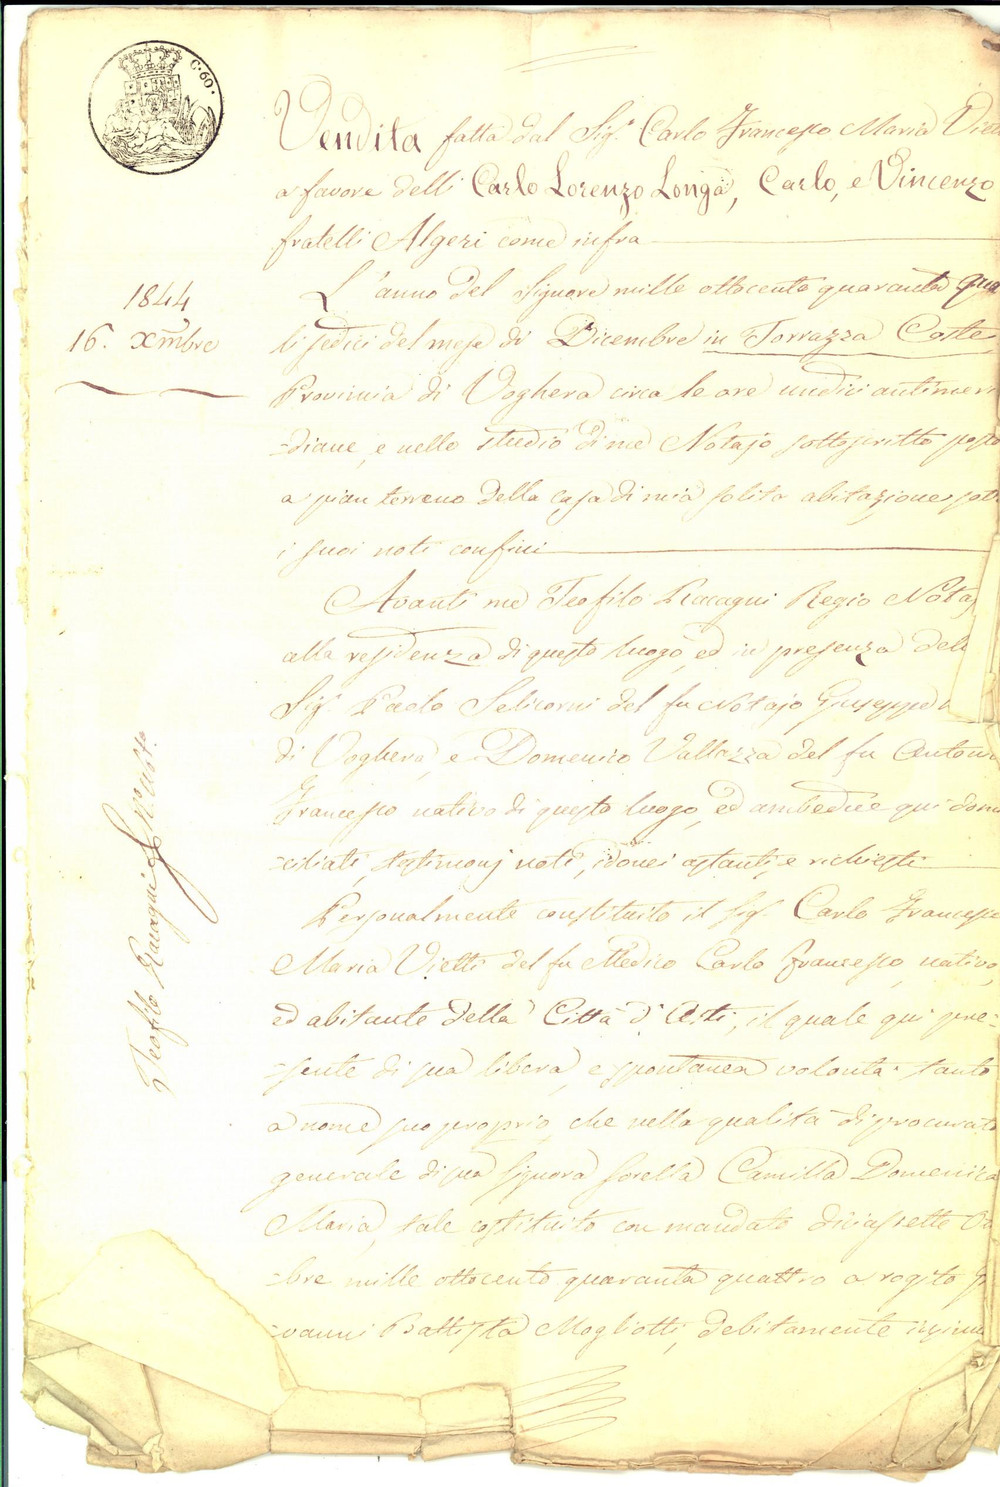 C. 60.
Vendita fatta dal Sig.r Carlo Francesco Maria Viet
a favore delli Carlo Lorenzo Longa, Carlo, e Vincenzo
fratelli Algeri come infra
1844
16. Xmbre
L'anno del Signore mille ottocento quaranta qua
li sedici del mese di Dicembre in Torrazza Coste
Provincia di Voghera circa le ore undici antimeri
=diane, e nello studio di me Notajo sottoscritto posto
a pian terreno della casa di mia solita abitazione, sott
i suoi noti confini
Avanti me Teofilo Racagni Regio Nota
alla residenza di questo luogo, ed in presenza del
Sig.r Paolo Selicorni del fu Notajo Giuseppe
di Voghera, e Domenico Vallazza del fu Antonio
Francesco nativo di questo luogo, ed ambedue qui domi
=ciliati, testimonj noti, idonei astanti, e richiesti
Personalmente constituito il Sig.r Carlo Francesco
Maria Vietti del fu Medico Carlo Francesco, nativo,
ed abitante della Città d'Asti, il quale qui pre=
=sente di sua libera, e spontanea volontà tanto
a nome suo proprio, che nella qualità di procurato
generale di sua Signora sorella Camilla Domenica
Maria, tale costituito con mandato diciassette
=bre mille ottocento quaranta quattro a rogito
=vanni Battista Mogliotti, debitamente insinua
Teofilo Racagni Not.